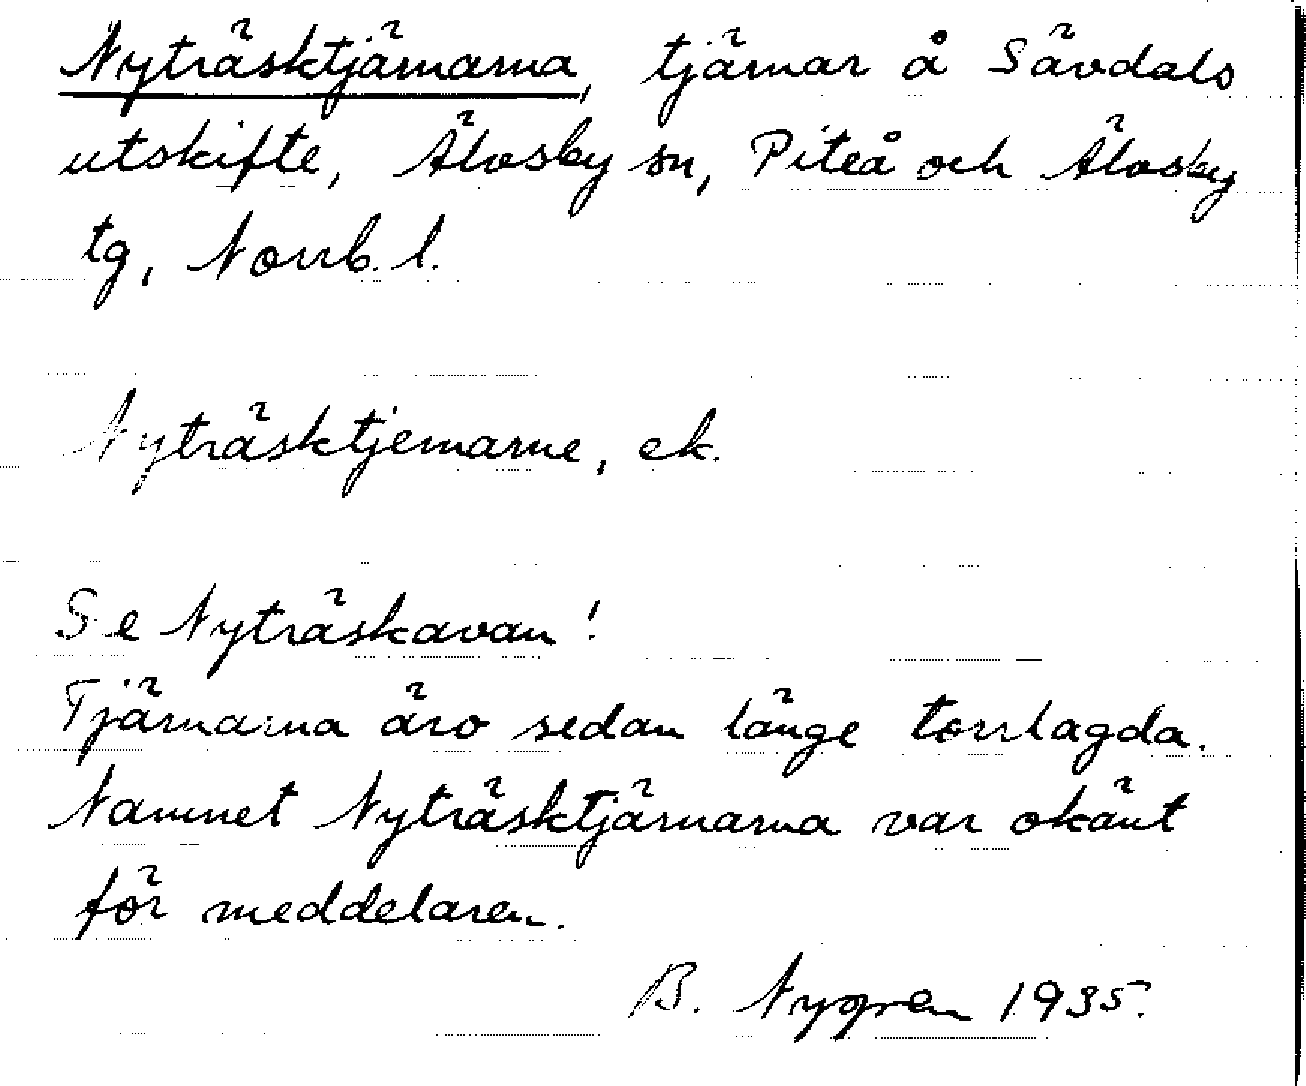 Nyträsktjärnarna, tjärnar å Sävdals
utskifte, Älvsby sn, Piteå och Älvsby
tg, Norrb. l.
Nyträsktjernarne, ek.
Se Nyträskavan!
Tjärnarna äro sedan länge torrlagda.
Namnet Nyträsktjärnarna var okänt
för meddelaren.
B. Nygren 1935.